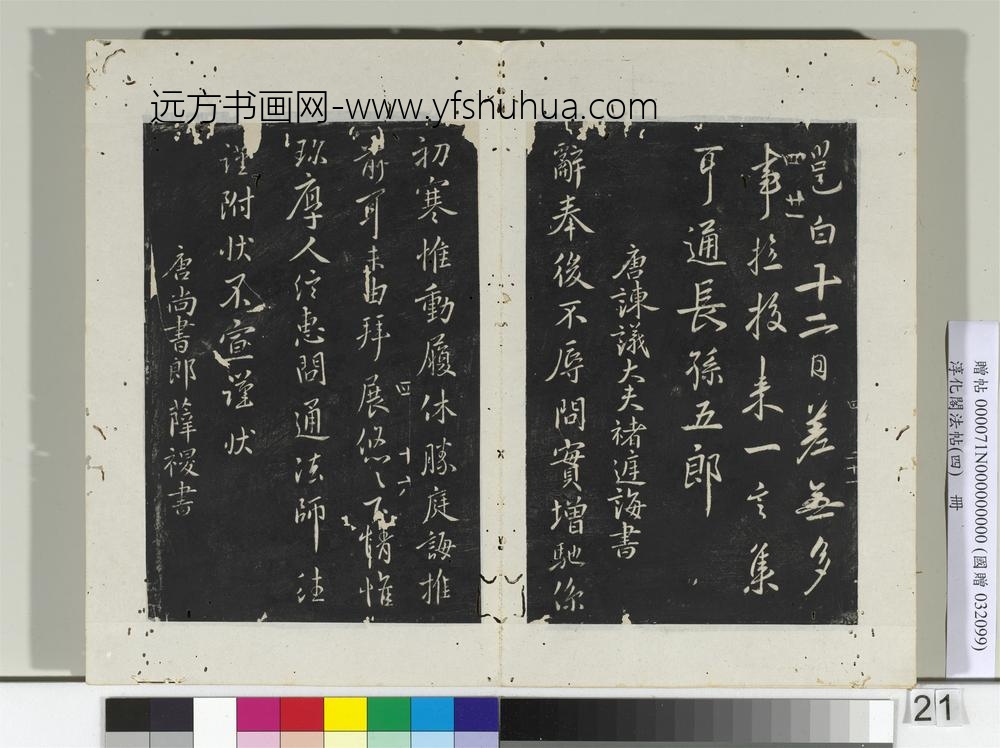 远方书画网-www.yfshuhua.com
邕白十二日差無多
四 廿一
事拉投来一言集
可通長孫五郎
唐諫議大夫褚庭誨書
辭奉後不辱問實增馳係
初寒惟動履休勝庭誨推
前可未由拜展悠〻下情惟
四 十六
珎厚人信惠問通法師往
謹附状不宣謹状
唐尚書郎薛稷書
贈帖 0000071N000000000 (國贈 032099)
淳化閣法帖(四) 冊
21